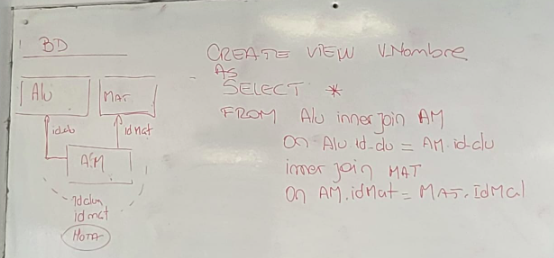 BD
Alu
MAT
idalu
idmat
AM
Idalu
idmat
NOTA
CREATE VIEW V_Nombre
AS
SELECT *
FROM Alu inner join AM
on Alu.id_alu = AM.id-alu
inner join MAT
on AM.idMat = MAT.IdMat